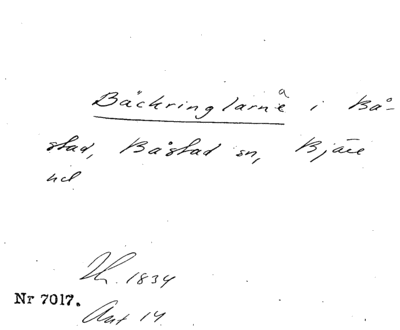 Bäckringlarnaͤ i Bå-
stad, Båstad sn, Bjäre
hd
1834
Nr 7017.
Ant 14